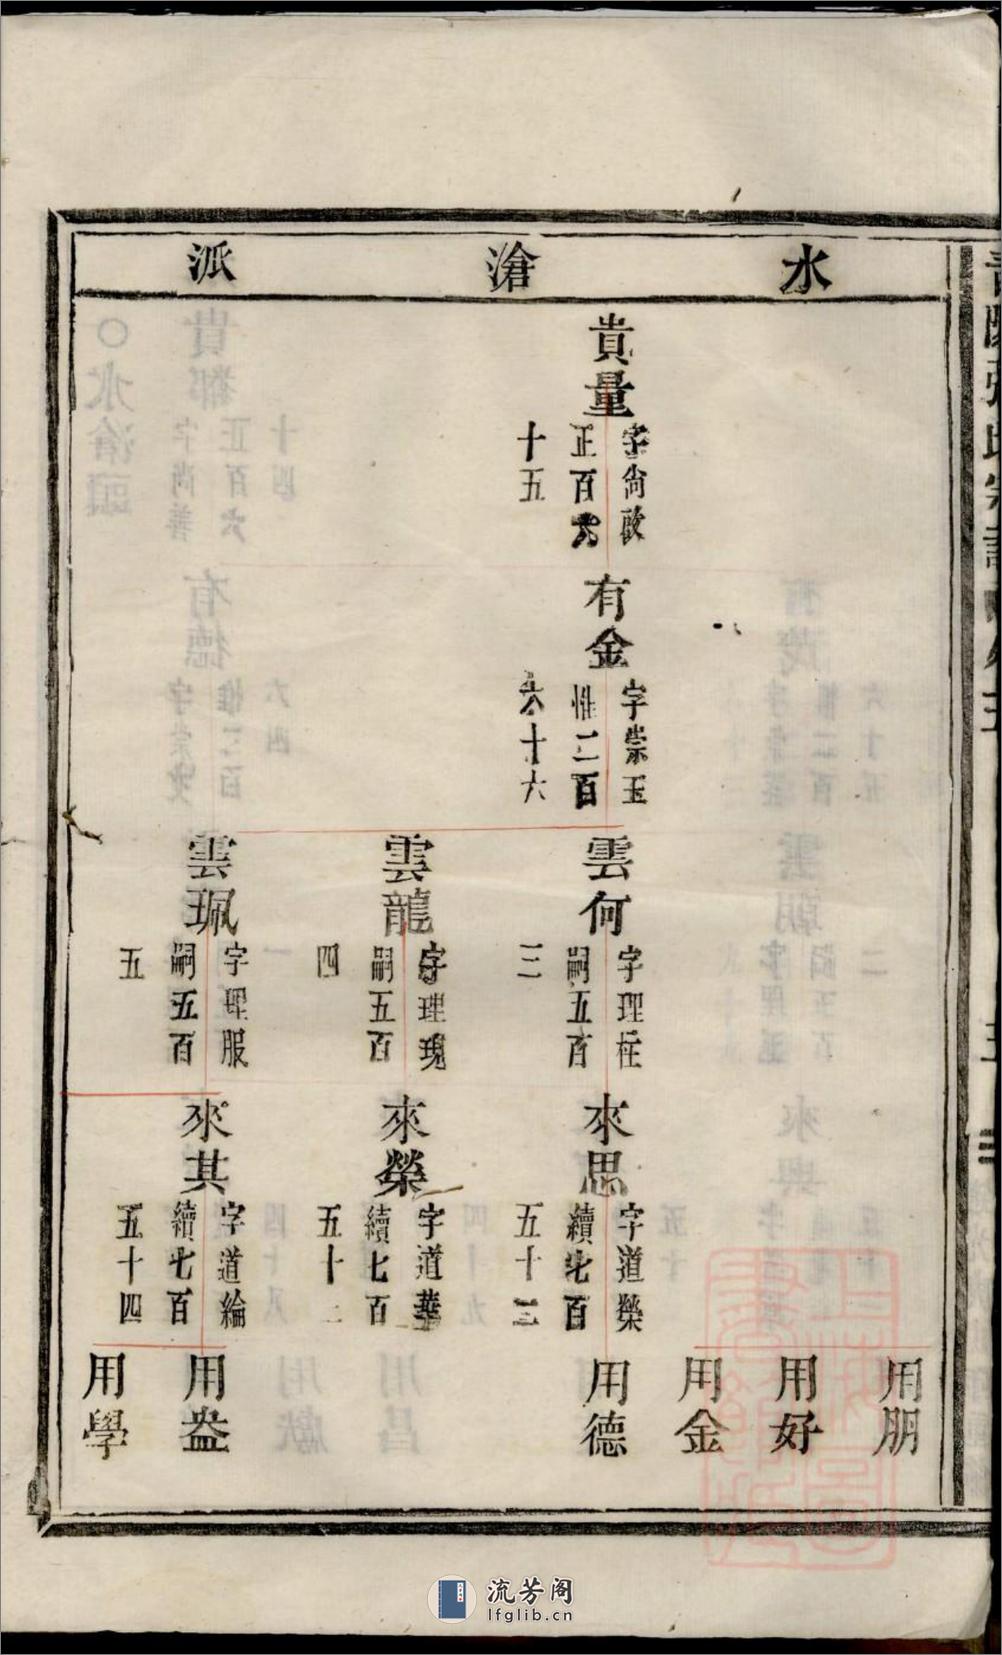 水滄派
貴量
字尚政
正百六
十五
有金
字崇玉
惟二百
六十六
雲何
字理柱
嗣五百
三
雲龍
字理瑰
嗣五百
四
雲珮
字理服
嗣五百
五
來思
字道榮
續七百
五十三
來榮
字道華
續七百
五十二
來其
字道綸
續七百
五十四
用朋
用好
用金
用德
用益
用學
流芳阁
lfglib.cn